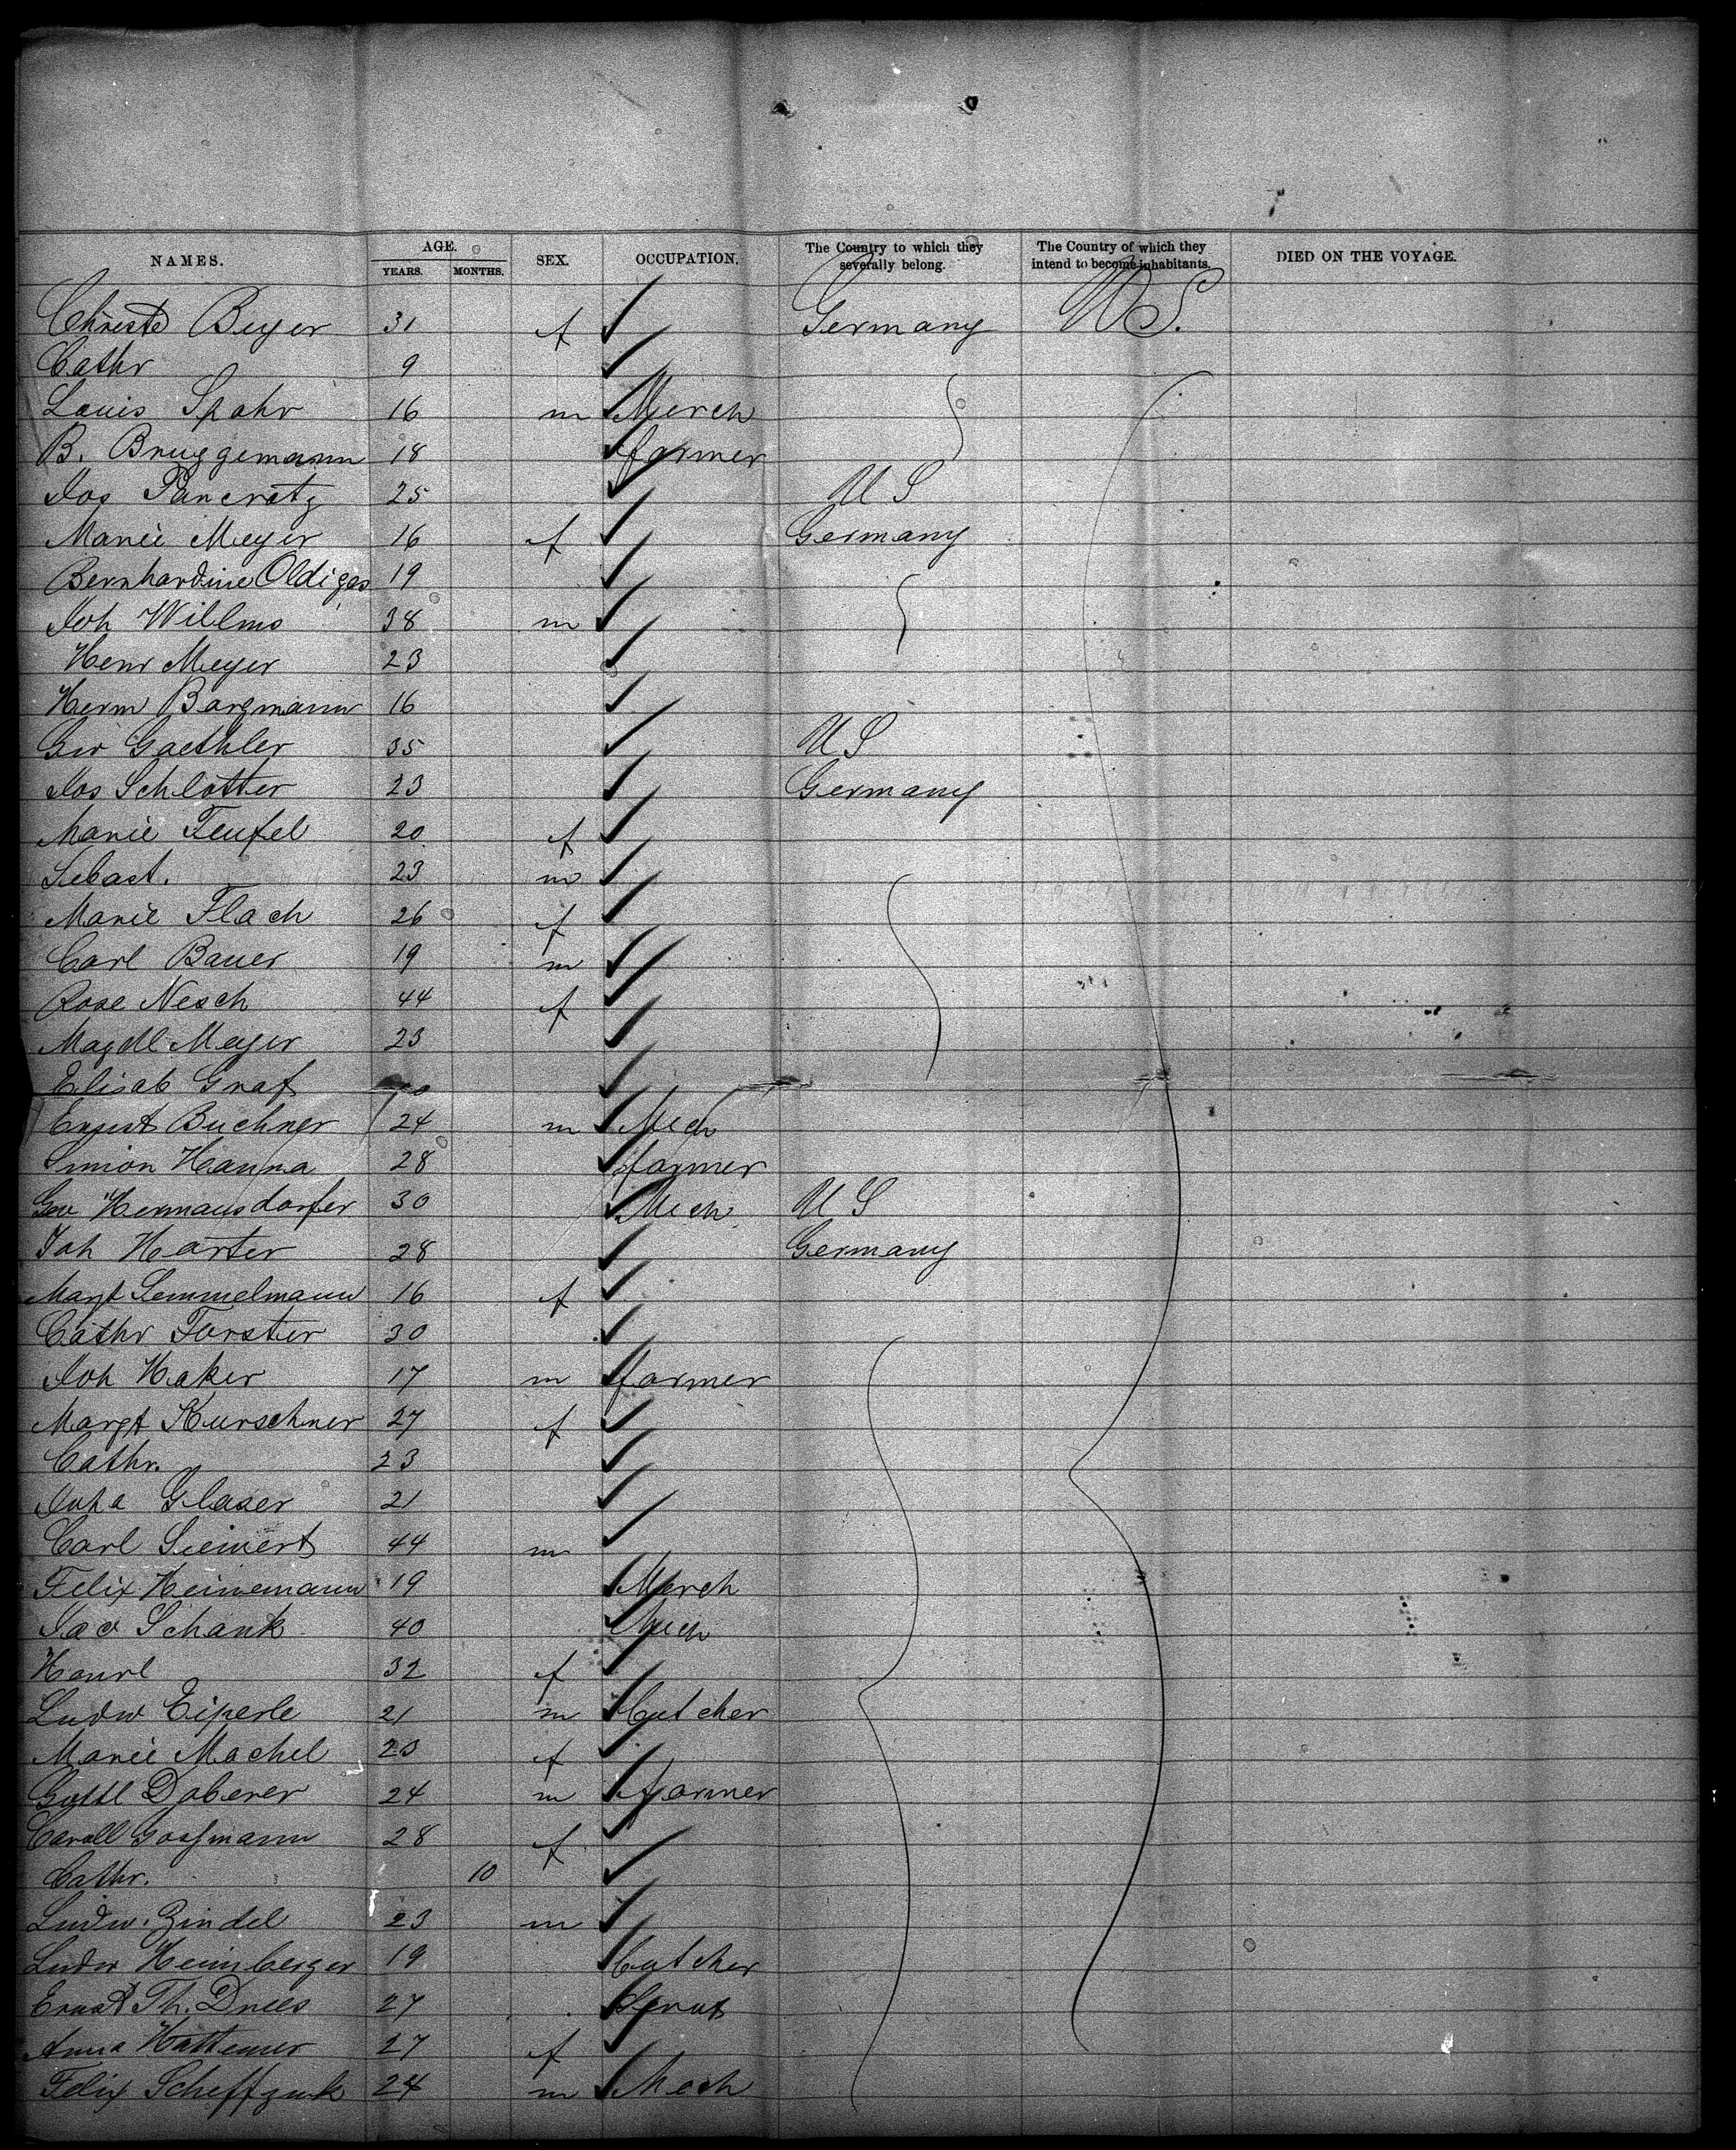 NAMES. AGE. YEARS. MONTHS. SEX. OCCUPATION. The Country to which they severally belong. The Country of which they intend to become inhabitants. DIED ON THE VOYAGE.
Beyer 31 f Germany US.
Cathr 9
Louis Spahr 16 m Merch
B. Bruggemann 18 farmer
Jos Pancratz 25 U S
Marie Meyer 16 f Germany
Bernhardine Oldiges 19
Joh Willms 38 m
Henr Meyer 23
Herm Bargmann 16
Geo Gaethler 35 U S
Jos Schlotter 23 Germany
Marie Teufel 20 f
Sebast. 23 m
Marie Flach 26 f
Carl Bauer 19 m
Rose Nesch 44 f
Magdl Meyer 23
Elisab Graf
Ernst Buchner 24 m Mech
Simon Hanna 28 farmer
Geo Hermansdorfer 30 Mech U S
Joh Harter 28 Germany
Margt Semmelmann 16 f
Cathr Forster 30
Joh Haker 17 m farmer
Margt Kurschner 27 f
Cathr. 23
Glaser 21
Carl Sievert 44 m
Felix Heinemann 19 Merch
Jac Schank 40 Mech
32 f
Ludw Eiperle 21 m butcher
Marie Machel 20 f
Gottl Doberer 24 m farmer
28 f
Cathr. 10
Ludw. Zindel 23 m
Ludw Heimberger 19 butcher
Ernst Th. Drees 27
Anna Hattemer 27 f
Felix 24 m Mech